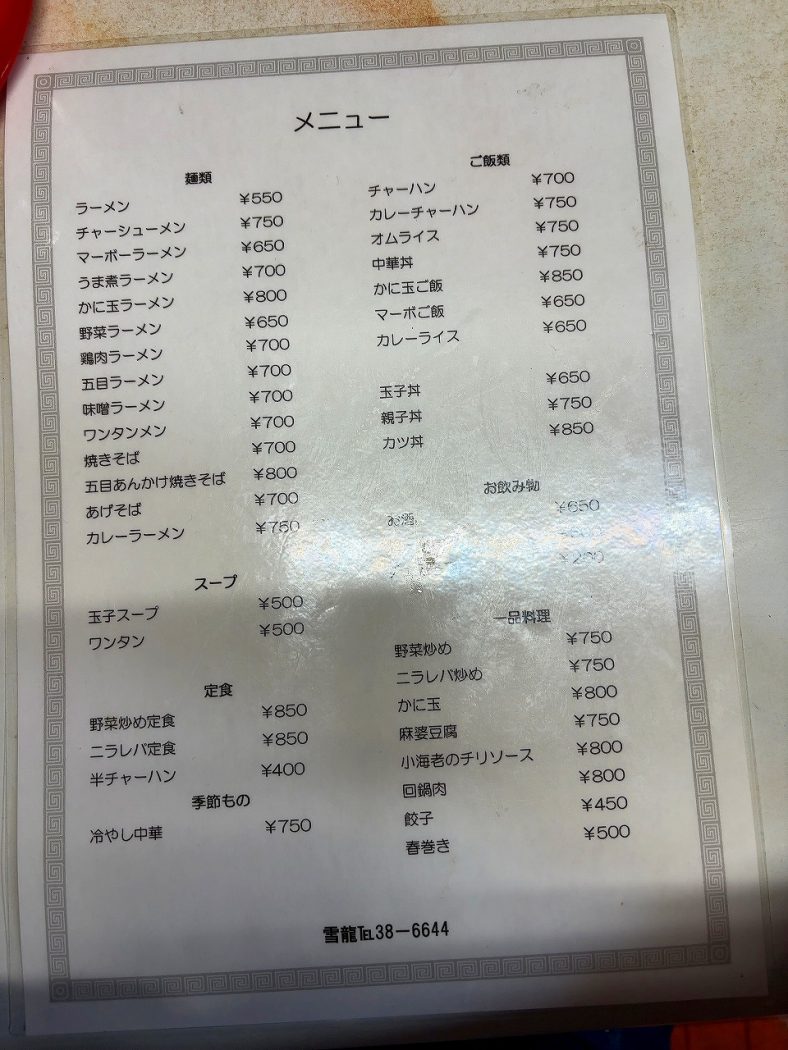 メニュー
麺類
ラーメン ¥550
チャーシューメン ¥750
マーボーラーメン ¥650
うま煮ラーメン ¥700
かに玉ラーメン ¥800
野菜ラーメン ¥650
鶏肉ラーメン ¥700
五目ラーメン ¥700
味噌ラーメン ¥700
ワンタンメン ¥700
焼きそば ¥700
五目あんかけ焼きそば ¥800
あげそば ¥700
カレーラーメン ¥750
スープ
玉子スープ ¥500
ワンタン ¥500
定食
野菜炒め定食 ¥850
ニラレバ定食 ¥850
半チャーハン ¥400
季節もの
冷やし中華 ¥750
ご飯類
チャーハン ¥700
カレーチャーハン ¥750
オムライス ¥750
中華丼 ¥750
かに玉ご飯 ¥850
マーボご飯 ¥650
カレーライス ¥650
玉子丼 ¥650
親子丼 ¥750
カツ丼 ¥850
お飲み物
¥650
お酒
一品料理
野菜炒め ¥750
ニラレバ炒め ¥750
かに玉 ¥800
麻婆豆腐 ¥750
小海老のチリソース ¥800
回鍋肉 ¥800
餃子 ¥450
春巻き ¥500
雪龍℡38－6644